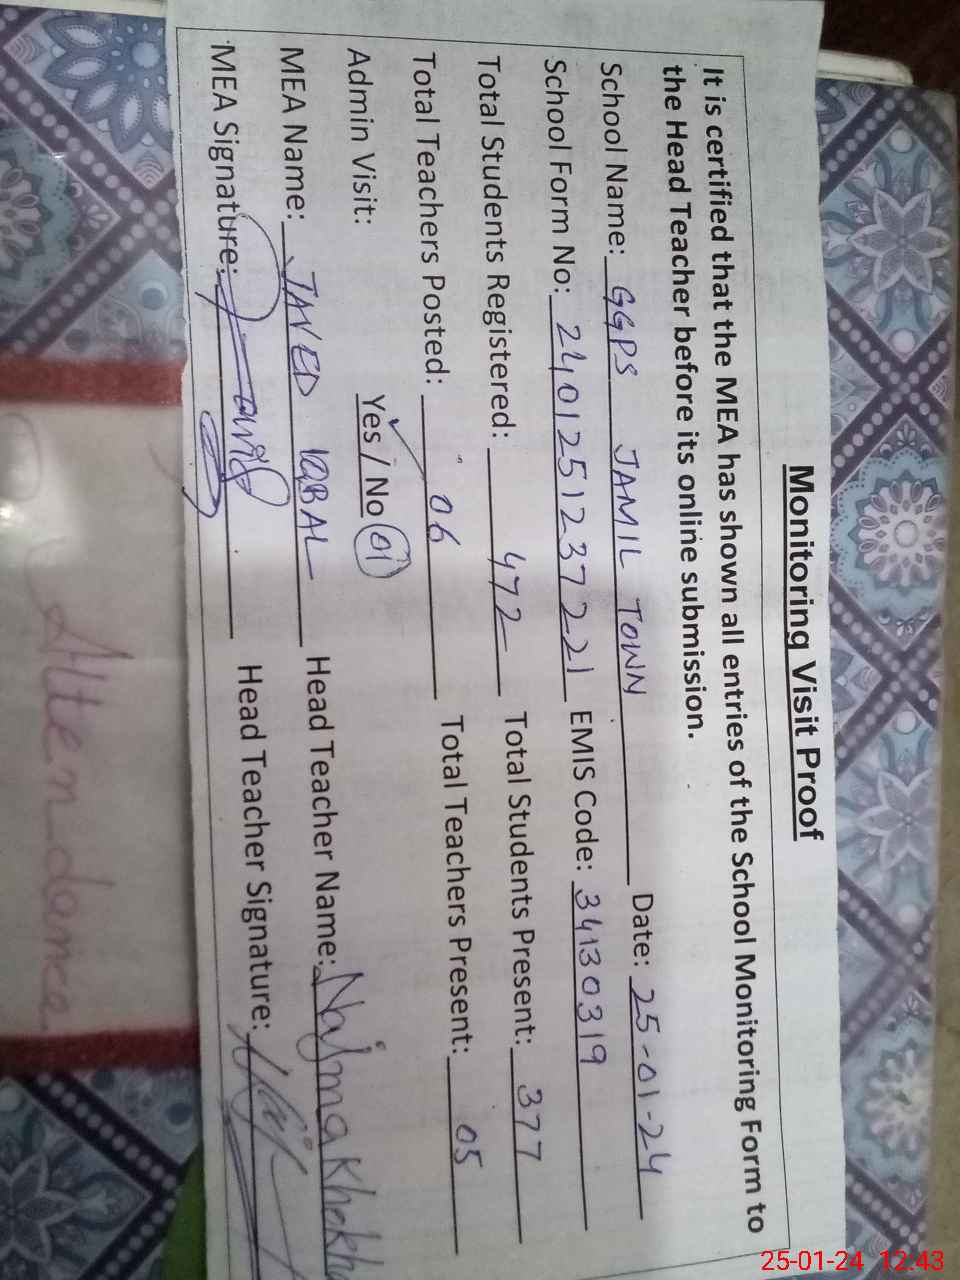 Monitoring Visit Proof
It is certified that the MEA has shown all entries of the School Monitoring Form to
the Head Teacher before its online submission.
School Name: GGPS JAMIL TOWN Date: 25-01-24
School Form No: 2401251237221 EMIS Code: 34130319
Total Students Registered: 472 Total Students Present: 377
Total Teachers Posted: 06 Total Teachers Present: 05
Admin Visit: Yes / No 01
MEA Name: JAVED IQBAL Head Teacher Name: Najma
MEA Signature: Head Teacher Signature:
Attendance
25-01-24 12:43